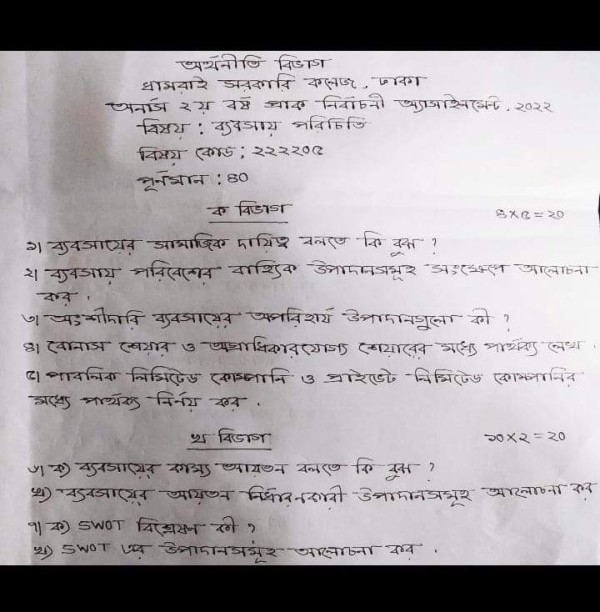 অর্থনীতি বিভাগ
ধামরাই সরকারি কলেজ, ঢাকা
অনার্স ২য় বর্ষ প্রাক নির্বাচনী অ্যাসাইনমেন্ট, ২০২২
বিষয় : ব্যবসায় পরিচিতি
বিষয় কোড : ২২২২০৫
পূর্নমান : ৪০
ক বিভাগ
৪×৫=২০
১। ব্যবসায়ের সামাজিক দায়িত্ব বলতে কি বুঝ ?
২। ব্যবসায় পরিবেশের বাহ্যিক উপাদানসমূহ সংক্ষেপে আলোচনা
কর ,
৩। অংশীদারি ব্যবসায়ের অপরিহার্য উপাদানগুলো কী ?
৪। বোনাস শেয়ার ও অগ্রাধিকারযোগ্য শেয়ারের মধ্যে পার্থক্য লেখ .
৫। পাবলিক লিমিটেড কোম্পানি ও প্রাইভেট লিমিটেড কোম্পানির
মধ্যে পার্থক্য নির্নয় কর .
খ বিভাগ
১০×২=২০
৬। ক) ব্যবসায়ের কাম্য আয়তন বলতে কি বুঝ ?
খ) ব্যবসায়ের আয়তন নির্ধারনকারী উপাদানসমূহ আলোচনা কর
৭। ক) SWOT বিশ্লেষণ কী ?
খ) SWOT এর উপাদানসমূহ আলোচনা কর .